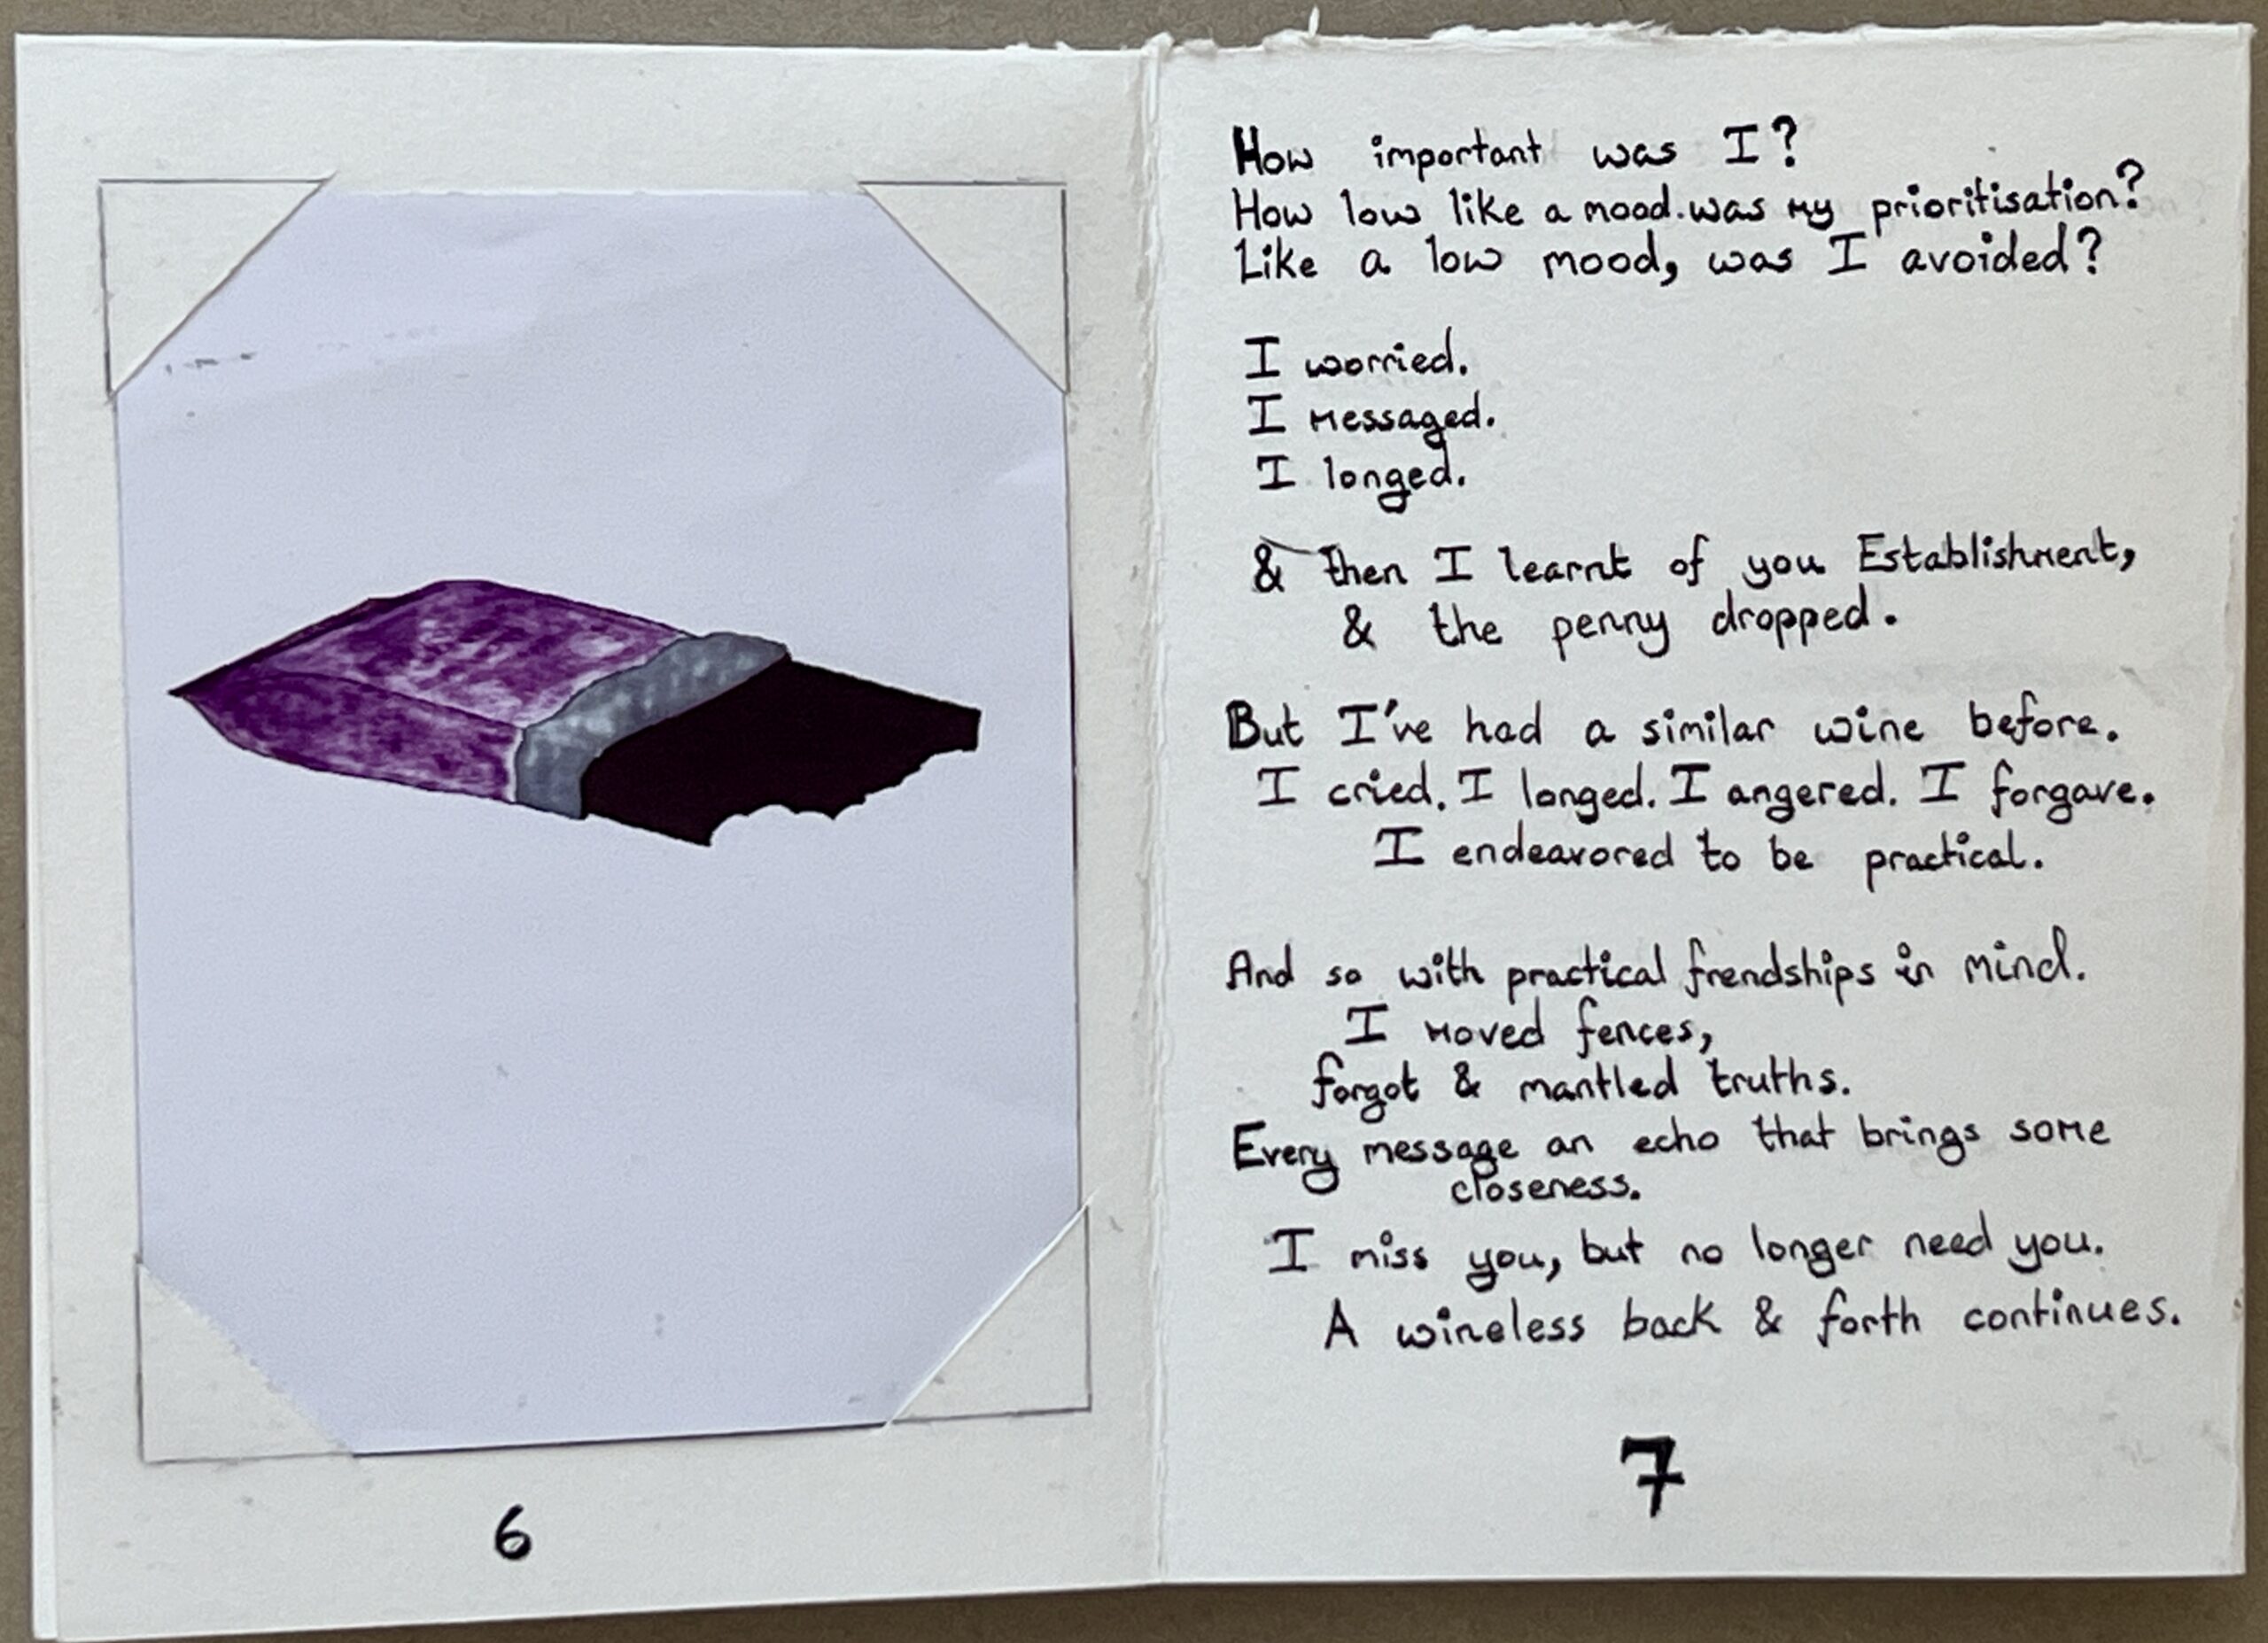 6
How important was I?
How low like a mood was my prioritisation?
Like a low mood, was I avoided?
I worried.
I messaged.
I longed.
& then I learnt of you Establishment,
& the penny dropped.
But I've had a similar wine before.
I cried. I longed. I angered. I forgave.
I endeavored to be practical.
And so with practical frendships in mind.
I moved fences,
forgot & mantled truths.
Every message an echo that brings some
closeness.
I miss you, but no longer need you.
A wineless back & forth continues.
7